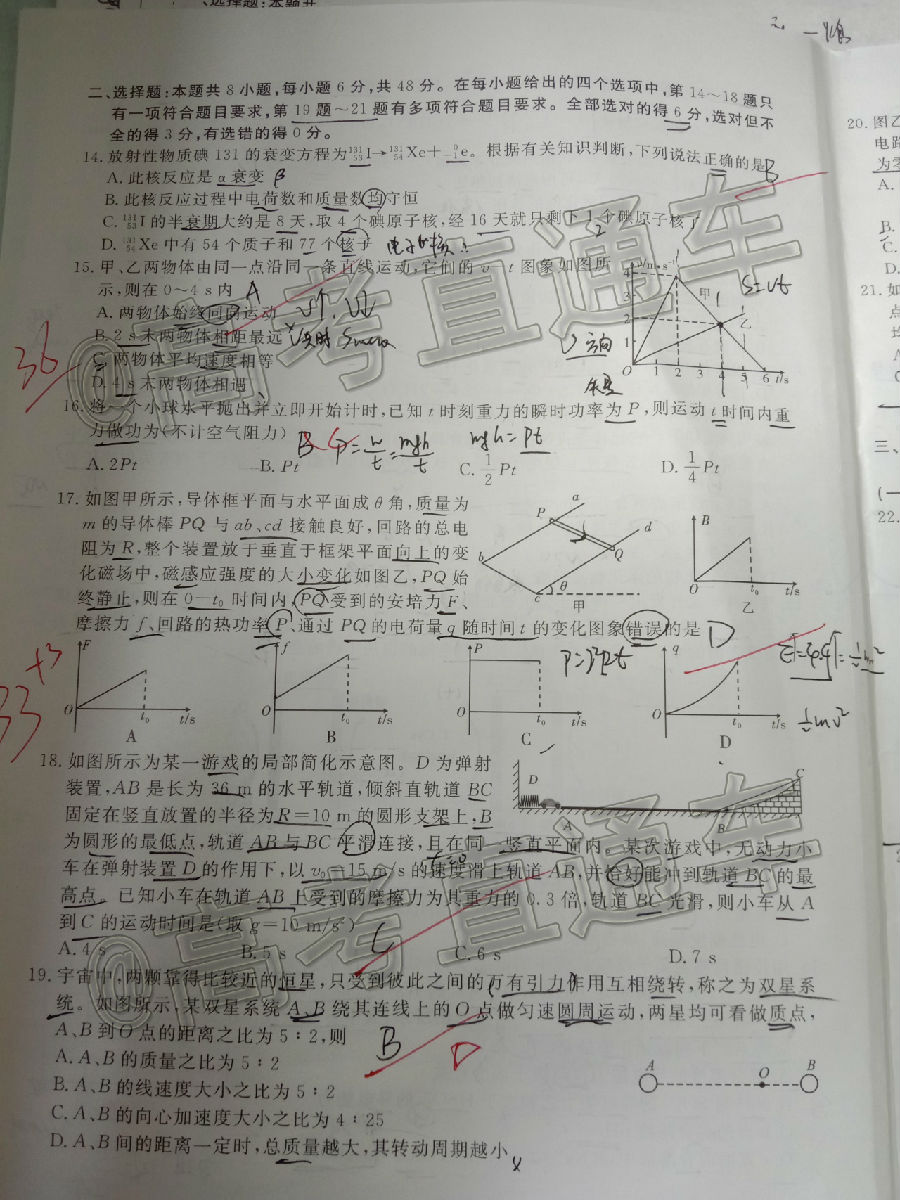 二、选择题:本题共8小题,每小题6分,共48分。在每小题给出的四个选项中,第14～18题只
有一项符合题目要求,第19题～21题有多项符合题目要求。全部选对的得6分,选对但不
全的得3分,有选错的得0分。
14.放射性物质碘131的衰变方程为¹³¹₅₃I→¹³¹₅₄Xe+⁰₋₁e。根据有关知识判断,下列说法正确的是 B
A.此核反应是α衰变 β
B.此核反应过程中电荷数和质量数均守恒
C.¹³¹₅₃I的半衰期大约是8天,取4个碘原子核,经16天就只剩下1个碘原子核了
D.¹³¹₅₄Xe中有54个质子和77个核子
15.甲、乙两物体由同一点沿同一条直线运动,它们的v-t图象如图所
示,则在0～4 s内 A
A.两物体始终同向运动
B.2 s末两物体相距最远
C.两物体平均速度相等
D.4 s末两物体相遇
v/(m·s⁻¹)
4
3
2
1
O 1 2 3 4 5 6 t/s
甲
乙
S=vt
方向
36
16.将一个小球水平抛出并立即开始计时,已知t时刻重力的瞬时功率为P,则运动t时间内重
力做功为(不计空气阻力) B C P=W/t=mgh/t mgh=Pt
A.2Pt B.Pt C.1/2Pt D.1/4Pt
17.如图甲所示,导体框平面与水平面成θ角,质量为
m的导体棒PQ与ab、cd接触良好,回路的总电
阻为R,整个装置放于垂直于框架平面向上的变
化磁场中,磁感应强度的大小变化如图乙,PQ始
终静止,则在0—t₀时间内,PQ受到的安培力F、
摩擦力f、回路的热功率P、通过PQ的电荷量q随时间t的变化图象错误的是 D
a
P
d
Q
b
c
θ
甲
B
O t₀ t/s
乙
F
O t₀ t/s
A
f
O t₀ t/s
B
P
O t₀ t/s
C
q
O t₀ t/s
D
½mv²
+3
33
18.如图所示为某一游戏的局部简化示意图。D为弹射
装置,AB是长为36 m的水平轨道,倾斜直轨道BC
固定在竖直放置的半径为R=10 m的圆形支架上,B
为圆形的最低点,轨道AB与BC平滑连接,且在同一竖直平面内。某次游戏中,无动力小
车在弹射装置D的作用下,以v₀=15 m/s的速度滑上轨道AB,并恰好能冲到轨道BC的最
高点。已知小车在轨道AB上受到的摩擦力为其重力的0.3倍,轨道BC光滑,则小车从A
到C的运动时间是(取g=10 m/s²) C
A.4 s B.5 s C.6 s D.7 s
D
A
B
C
19.宇宙中,两颗靠得比较近的恒星,只受到彼此之间的万有引力作用互相绕转,称之为双星系
统。如图所示,某双星系统A、B绕其连线上的O点做匀速圆周运动,两星均可看做质点,
A、B到O点的距离之比为5∶2,则 B D
A.A、B的质量之比为5∶2
B.A、B的线速度大小之比为5∶2
C.A、B的向心加速度大小之比为4∶25
D.A、B间的距离一定时,总质量越大,其转动周期越小
A O B
20.图乙
电路
为零
A.
B.
C.
D.
21.如
点
A.
B.
C.
D.
三、
(一
22.
@高考直通车
@高考直通车